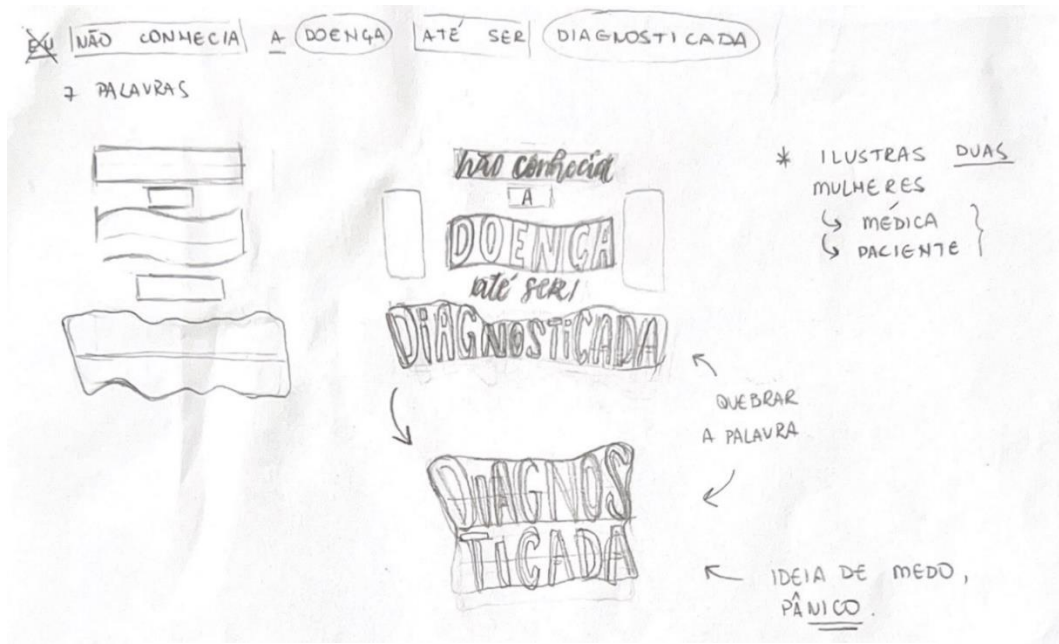 EU NÃO CONHECIA A DOENÇA ATÉ SER DIAGNOSTICADA
7 PALAVRAS
não conhecia
A
DOENÇA
até ser/
DIAGNOSTICADA
DIAGNOS
TICADA
* ILUSTRAS DUAS
MULHERES
↳ MÉDICA
↳ PACIENTE
QUEBRAR
A PALAVRA
IDEIA DE MEDO,
PÂNICO.